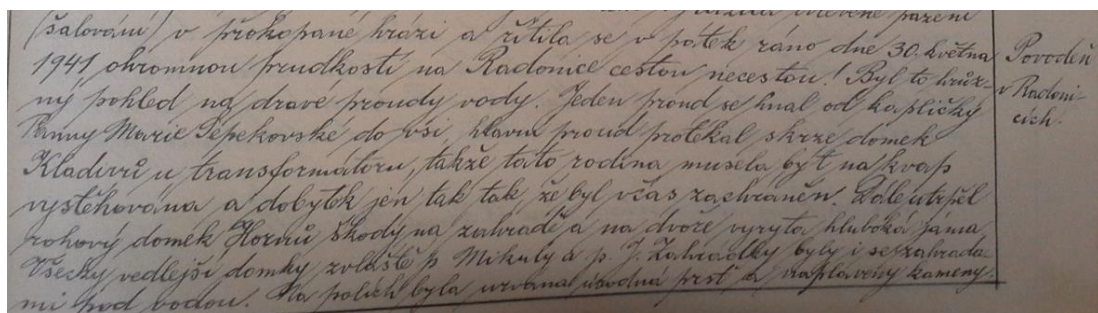 pažení
(šalování) v prokopané hrázi a řítila se v pátek ráno dne 30. května
1941 ohromnou prudkostí na Radonice cestou necestou! Byl to hrůz-
ný pohled na dravé proudy vody. Jeden proud se hnal od kapličky
Panny Marie Sepekovské do vsi, hlavní proud protékal skrze domek
Kladivů u transformátoru, takže tato rodina musela být na kvap
vystěhována a dobytek jen tak tak, že byl včas zachráněn. Dále utrpěl
rohový domek Hozmů škody na zahradě a na dvoře vyryta hluboká jáma,
Všecky vedlejší domky zvláště p. Mikuly a p. J. Zahrádky byly i se zahrada-
mi pod vodou. Na polích byla urvána úrodná prsť a naplaveny kameny.
Povodeň
v Radoni-
cích.